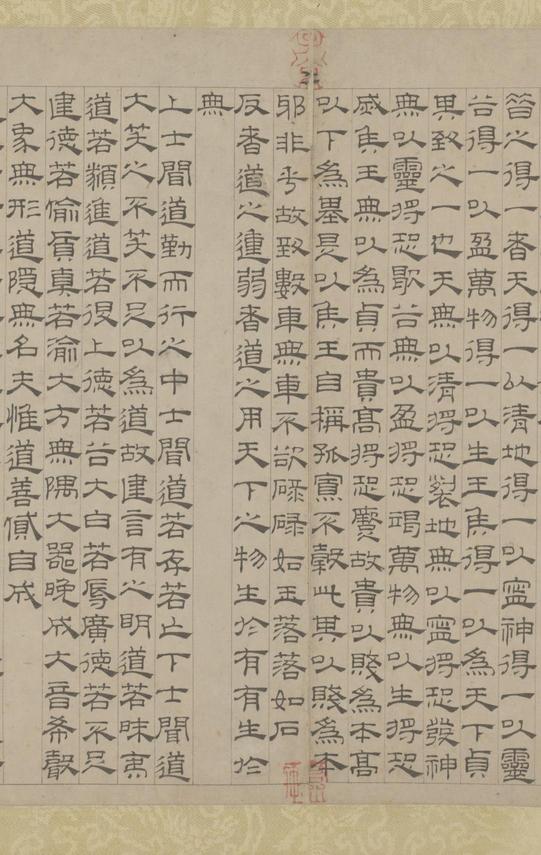 昔之得一者天得一以清地得一以寧神得一以靈
谷得一以盈萬物得一以生王侯得一以爲天下貞
其致之一也天無以清將恐裂地無以寧將恐發神
無以靈將恐歇谷無以盈將恐竭萬物無以生將恐
滅侯王無以爲貞而貴高將恐蹷故貴以賤爲本高
以下爲基是以侯王自稱孤寡不穀此其以賤爲本
邪非乎故致數車無車不欲碌碌如玉落落如石
反者道之動弱者道之用天下之物生於有有生於
無
上士聞道勤而行之中士聞道若存若亡下士聞道
大笑之不笑不足以爲道故建言有之明道若昧夷
道若類進道若退上德若谷大白若辱廣德若不足
建德若偷質真若渝大方無隅大器晚成大音希聲
大象無形道隱無名夫惟道善貸且成